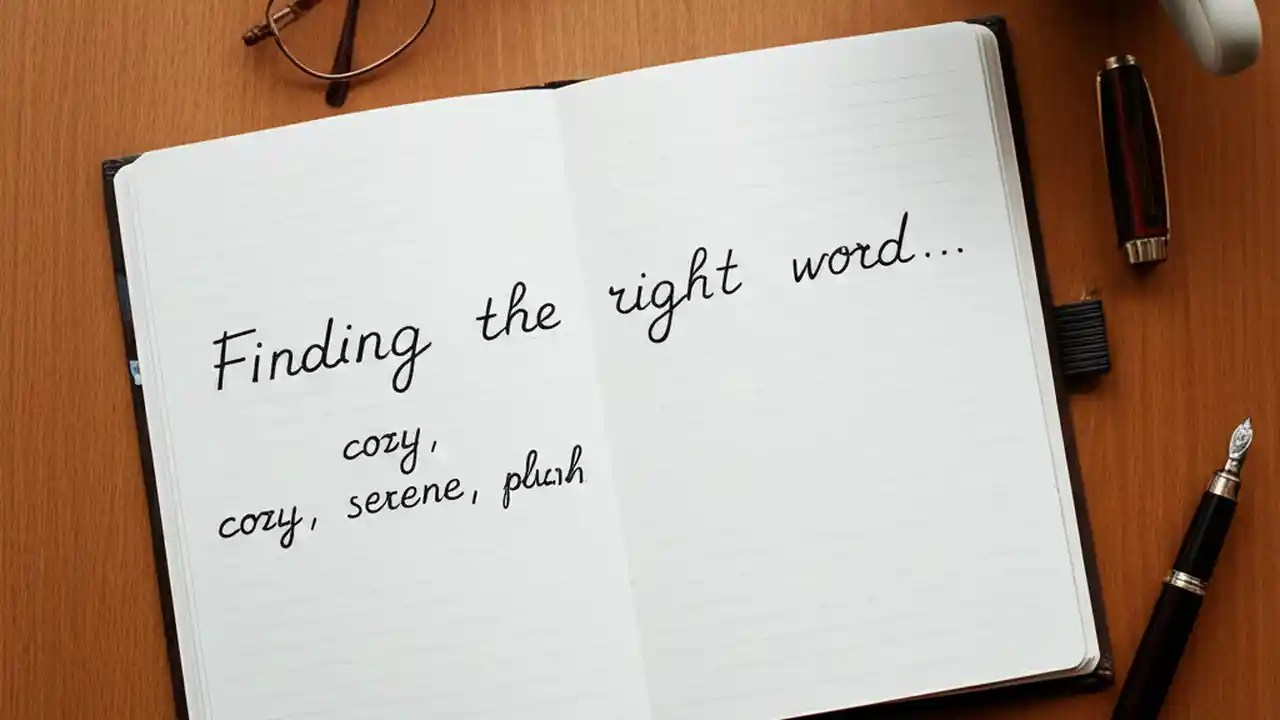 Finding the right word...
cozy,
cozy, serene, plush